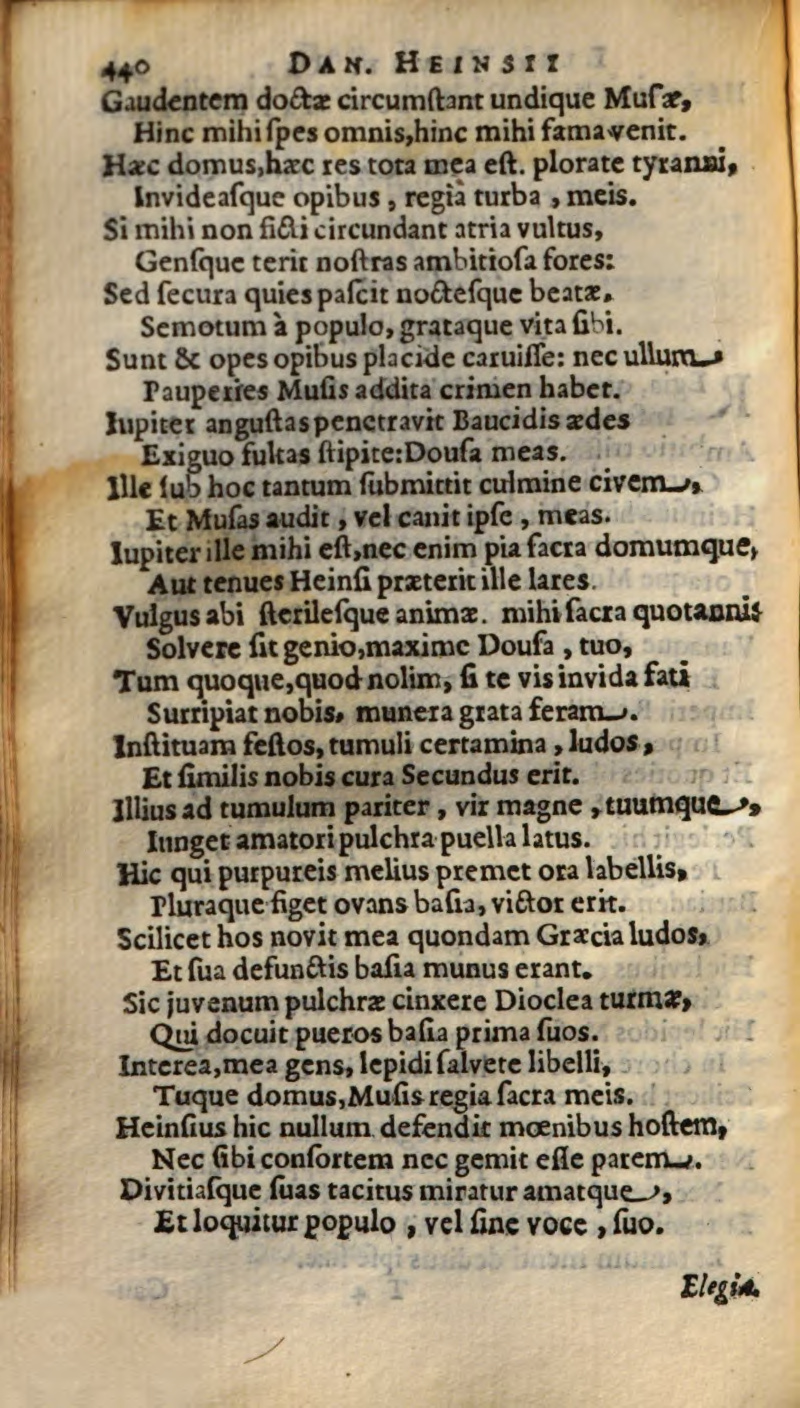 440 DAN. HEINSII
Gaudentem doctæ circumſtant undique Muſæ,
Hinc mihi ſpes omnis, hinc mihi fama venit.
Hæc domus, hæc res tota mea eſt. plorate tyranni,
Invideaſque opibus, regia turba, meis.
Si mihi non ficti circundant atria vultus,
Genſque terit noſtras ambitioſa fores:
Sed ſecura quies paſcit nocteſque beatæ,
Semotum à populo, grataque vita ſibi.
Sunt & opes opibus placide caruiſſe: nec ullum
Pauperies Muſis addita crimen habet.
Iupiter anguſtas penetravit Baucidis ædes
Exiguo fultas ſtipite: Douſa meas.
Ille ſub hoc tantum ſubmittit culmine civem,
Et Muſas audit, vel canit ipſe, meas.
Iupiter ille mihi eſt, nec enim pia ſacra domumque,
Aut tenues Heinſi præterit ille lares.
Vulgus abi ſterileſque animæ. mihi ſacra quotannis
Solvere ſit genio, maxime Douſa, tuo,
Tum quoque, quod nolim, ſi te vis invida fati
Surripiat nobis, munera grata feram.
Inſtituam feſtos, tumuli certamina, ludos,
Et ſimilis nobis cura Secundus erit.
Illius ad tumulum pariter, vir magne, tuumque,
Iunget amatori pulchra puella latus.
Hic qui purpureis melius premet ora labellis,
Pluraque figet ovans baſia, victor erit.
Scilicet hos novit mea quondam Græcia ludos,
Et ſua defunctis baſia munus erant.
Sic juvenum pulchræ cinxere Dioclea turmæ,
Qui docuit pueros baſia prima ſuos.
Interea, mea gens, lepidi ſalvete libelli,
Tuque domus, Muſis regia ſacra meis.
Heinſius hic nullum defendit mœnibus hoſtem,
Nec ſibi conſortem nec gemit eſſe parem.
Divitiaſque ſuas tacitus miratur amatque,
Et loquitur populo, vel ſine voce, ſuo.
Elegia.